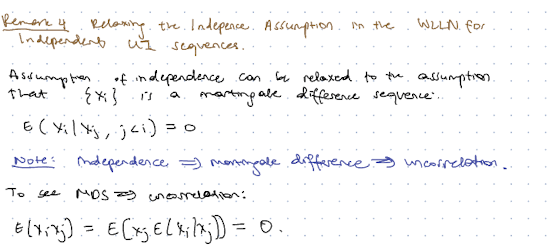 Remark 4 Relaxing the Indepence Assumption in the WLLN for
Independent UI sequences.
Assumption of independence can be relaxed to the assumption
that {Xi} is a martingale difference sequence:
E(Xi|Xj, j<i) = 0
Note: Independence ⇒ martingale difference ⇒ uncorrelation.
To see MDS ⇒ uncorrelation:
E(XiXj) = E[XjE(Xi|Xj)] = 0.